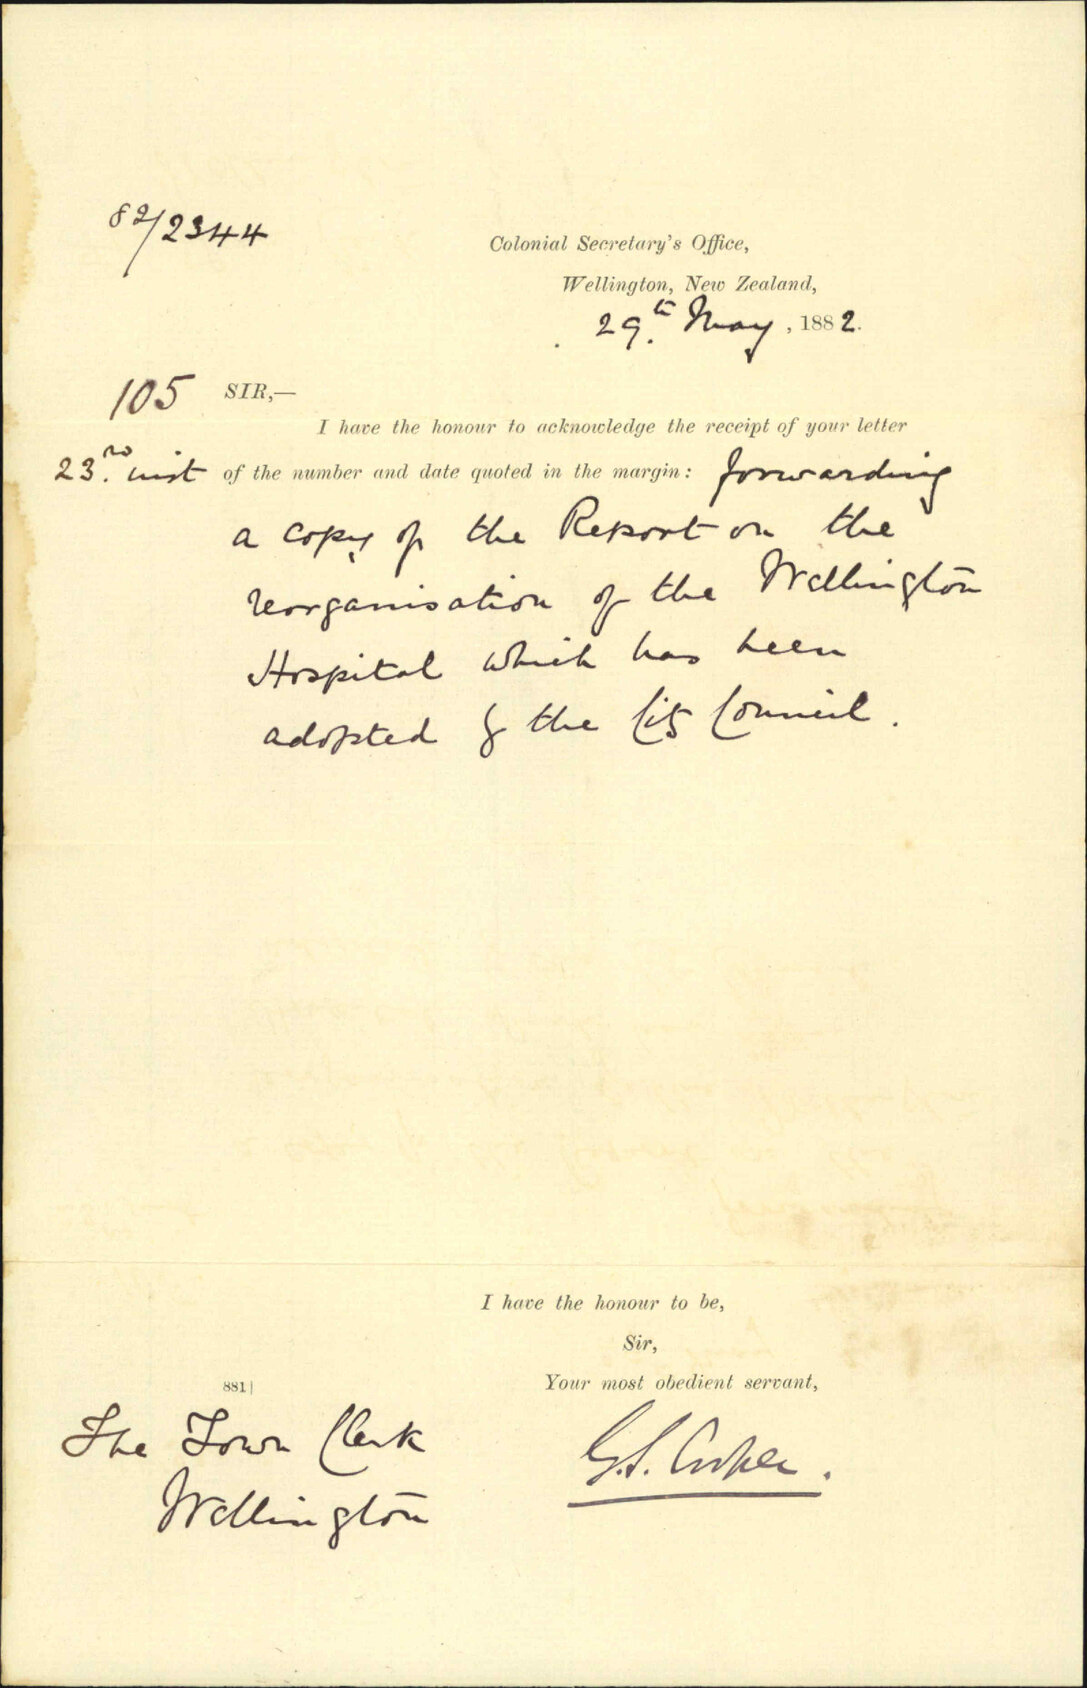 82/2344
Colonial Secretary's Office,
Wellington, New Zealand,
29th May, 1882.
105 SIR,—
I have the honour to acknowledge the receipt of your letter
23rd inst of the number and date quoted in the margin: forwarding
a copy of the Report on the
reorganisation of the Wellington
Hospital which has been
adopted by the City Council.
I have the honour to be,
Sir,
Your most obedient servant,
881|
The Town Clerk
G.S. Cooper.
Wellington